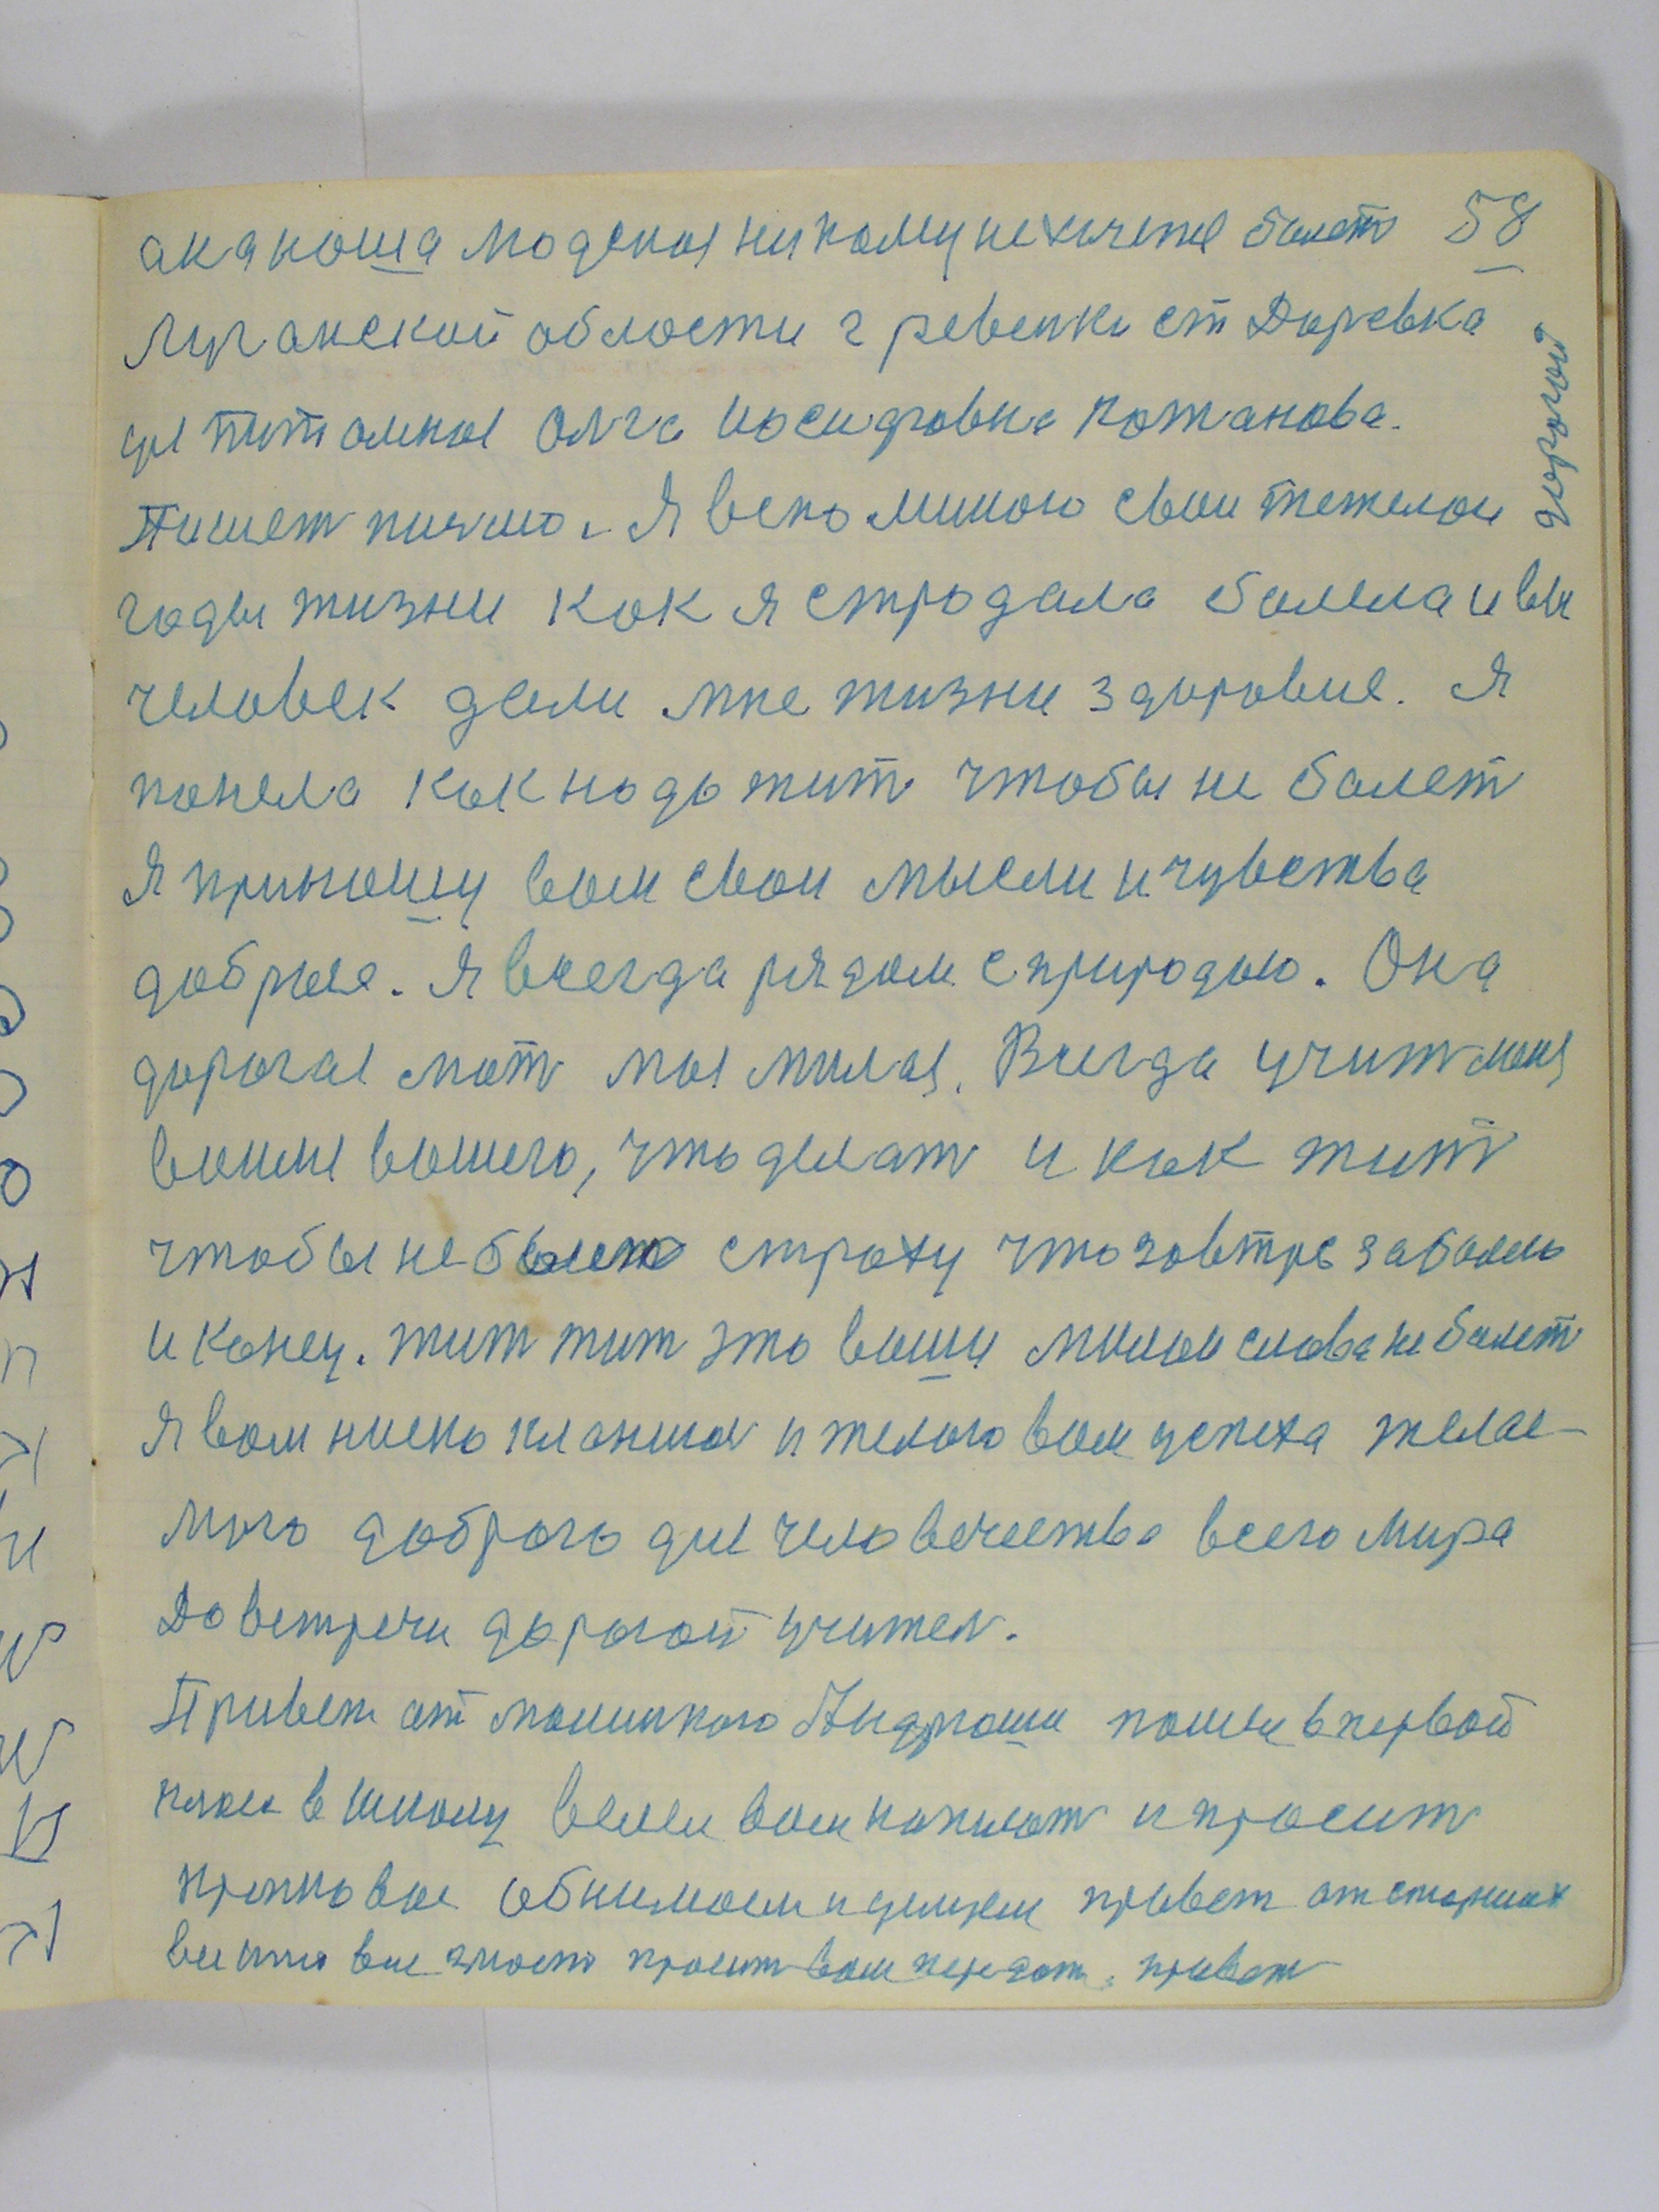 58
акакоша модскоя никому не хичется балеть
Луганской области г ревенки ст Даревка
Олга Иосифовна Кожанова.
Пишет писмо. Я вспоминою свои тежелои
годы жизни как я стродала балела и вы дорогой
человек дали мне жизни здоровие. Я
понела как надо жить чтобы не балеть
Я приношу вам свои мысли и чувства
добрыя. Я всегда рядом с природою. Она
дорогая моть моя милая. Всегда учит меня
вашего, что делать и как жить
чтобы не строху что завтре забалею
и конец. жить жить это ваши милои слова не балеть
Я вам ниско кланиюсь и желаю вам успеха желае-
мого доброго для человечества всего мира
До встречи дорогой учитель.
Привет от Андрюши пошел в первой
клас в школу велел вам написать и просит
крепко вас обнимаем и целуем привет от старших
все кто вас знает просит вам передать привет